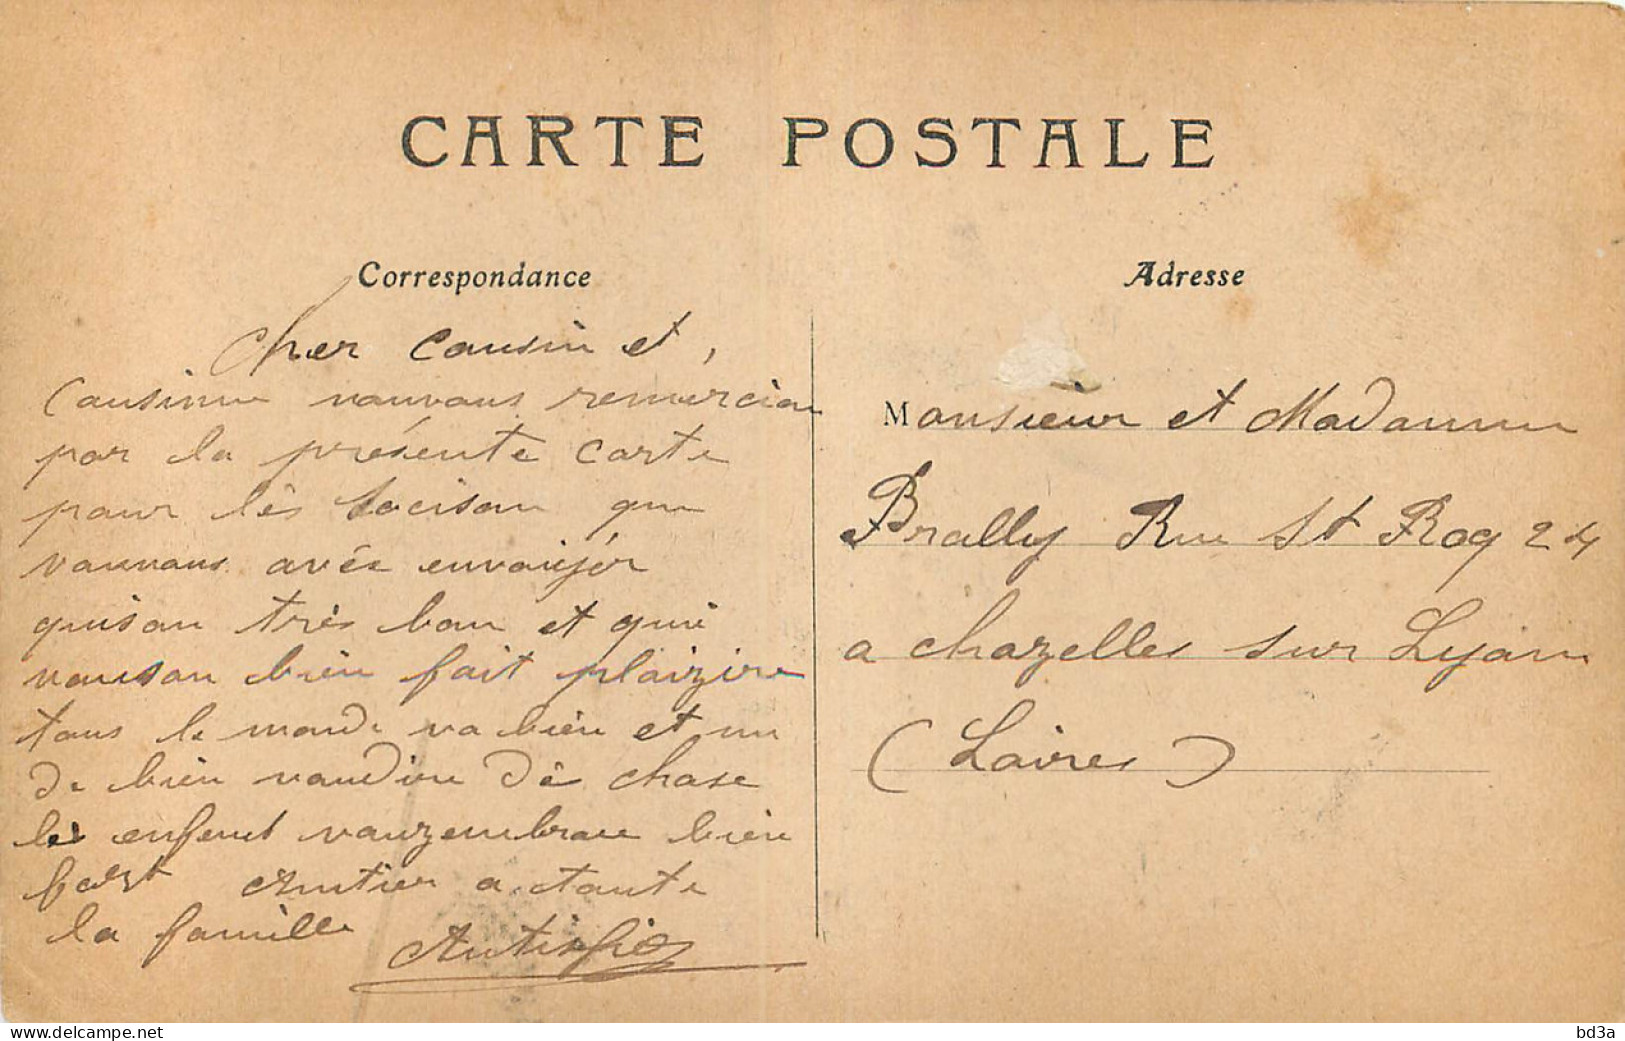 CARTE POSTALE
Correspondance
cher cousin et,
Cousinne nouvous remércion
par la présente carte
pour lés socison que
vounous avée envoiyér
quison très bon et qui
nouson bien fait plaizire
tous le monde va bien et un
de bien voudire dè chose
les enfent vouzembrase bien
fort amtier a toute
la famille
Adresse
Monsieur et Madamme
Brally Rue St Roq 24
a chazelles sur Lyon
(Loires)
delcampe.net
bd3a